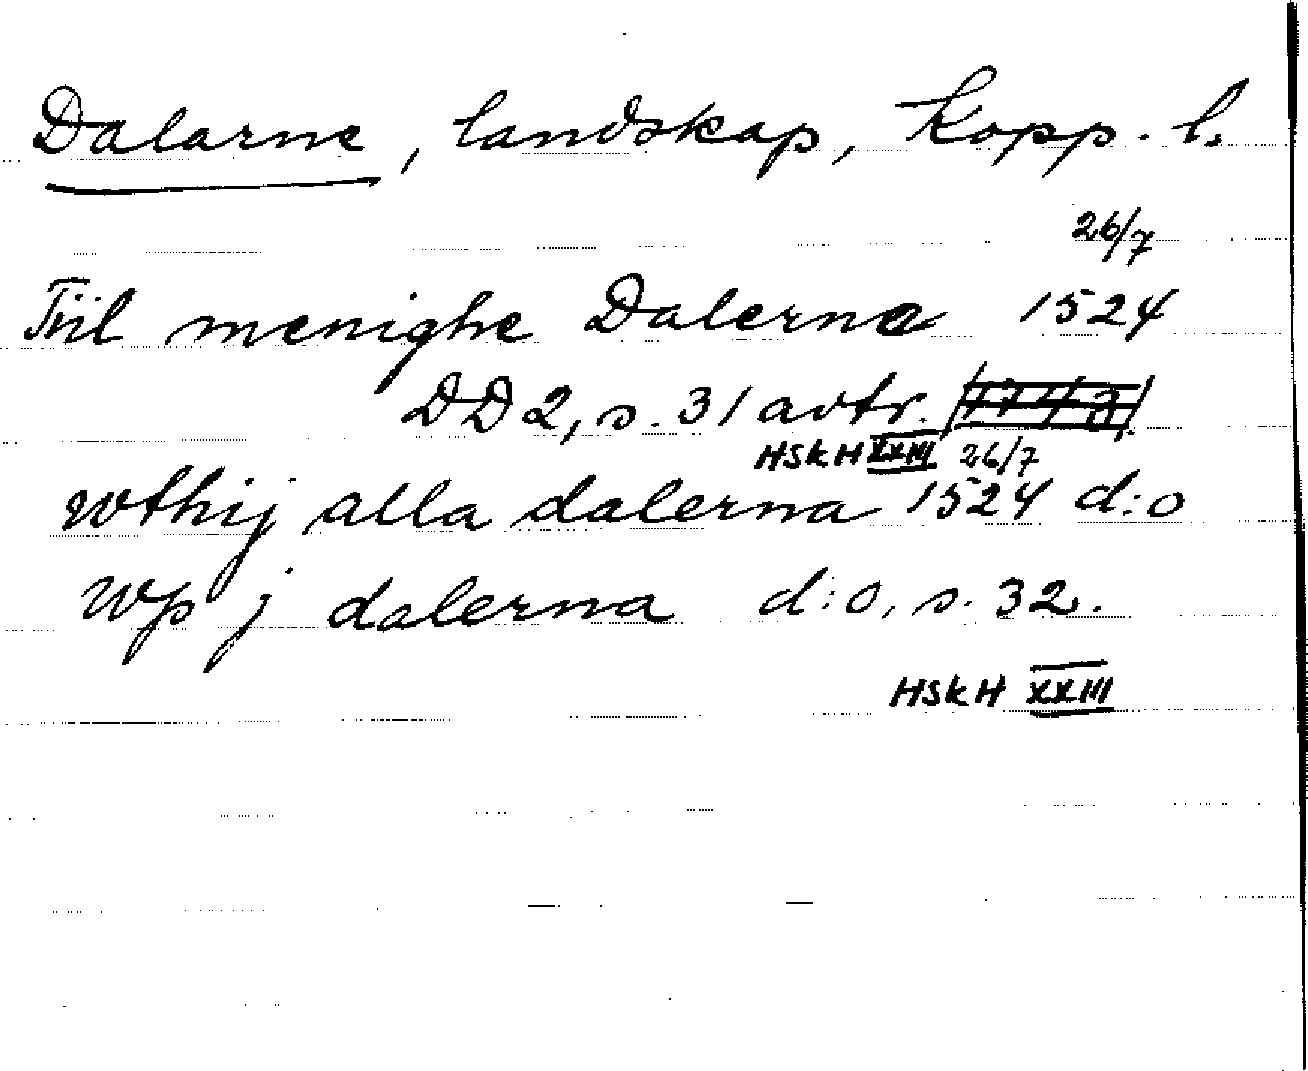 Dalarne, landskap, Kopp. l.
26/7
Tiil menighe Dalerna 1524
DD 2, s. 31 avtr.
HSkH XXIII 26/7
wthij alla dalerna 1524 d:o
wp j dalerna d:o, s. 32.
HSkH XXIII